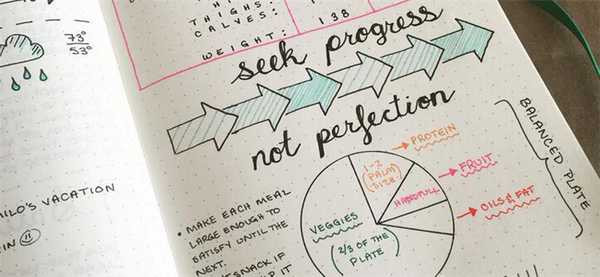 73°
53°
ILO'S VACATION
IN
THIGHS:
CALVES:
WEIGHT:
138
seek progress
not perfection
• MAKE EACH MEAL
LARGE ENOUGH TO
SATISFY UNTIL THE
NEXT.
SNACK, IF
IT
VEGGIES
(2/3 OF THE
PLATE)
1-2
(PALM
SIZE)
HANDFULL
→ PROTEIN
→ FRUIT
→ OILS & FAT
BALANCED PLATE